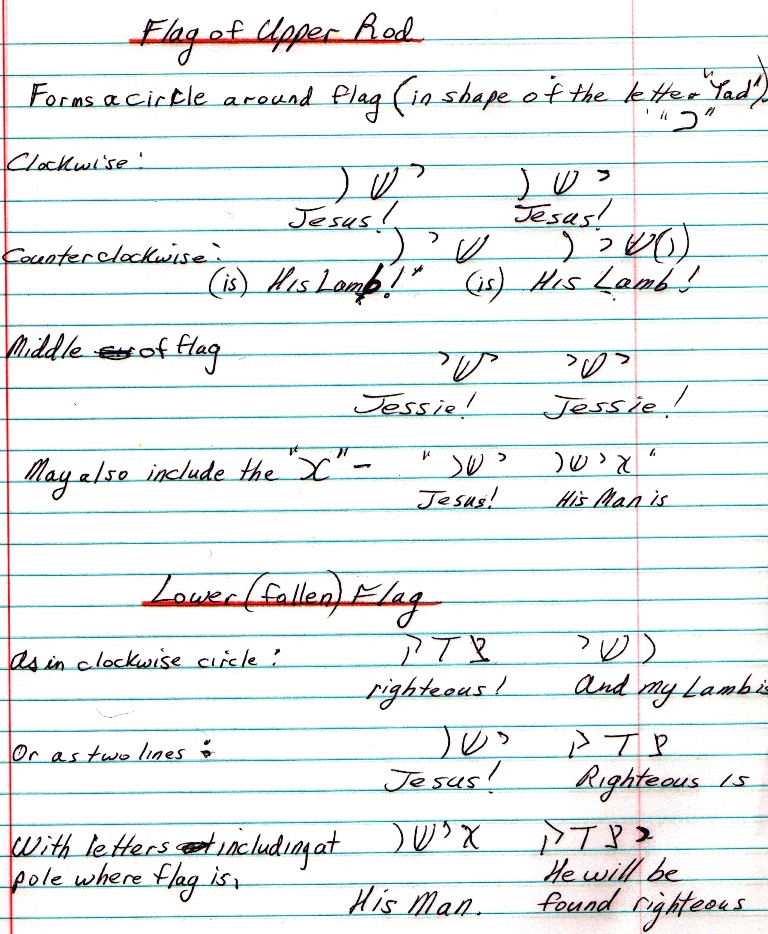 Flag of Upper Rod
Forms a circle around flag (in shape of the letter "Yad")
"כ"
Clockwise: ישו ישו
Jesus! Jesus!
Counterclockwise: שיו (ו)שיו
(is) His Lamb!" (is) His Lamb!
Middle of flag ישי ישי
Jessie! Jessie!
May also include the "א" - "ישו אישו"
Jesus! His Man is
Lower (fallen) Flag
As in clockwise circle: צדק ושי
righteous! And my Lamb is
Or as two lines: ישו צדק
Jesus! Righteous is
With letters including at אישו יצדק
pole where flag is, He will be
His Man. found righteous